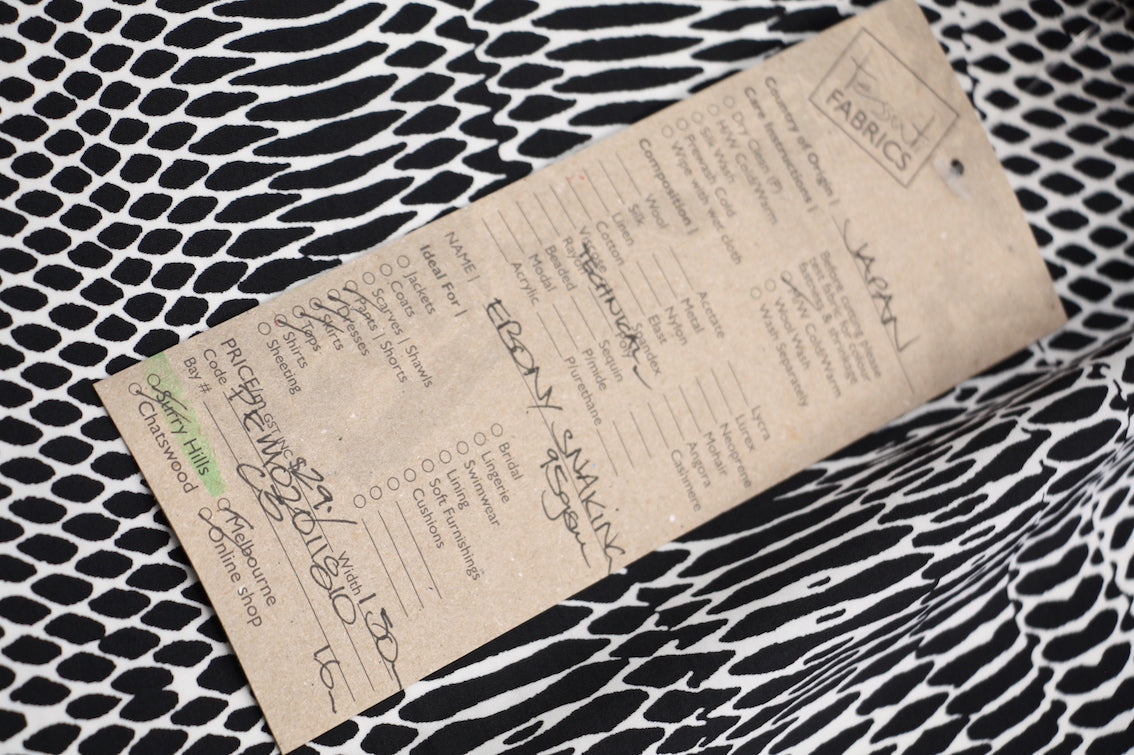 Tessuti
FABRICS
Country of Origin | JAPAN
Care Instructions |
Dry Clean (P)
H/W Cold/Warm
Silk Wash
Prewash Cold
Wipe with wet cloth
Before cutting please
pest for colour
fastness & shrinkage
H/W Cold/Warm
Wool Wash
Wash Separately
Composition |
Wool
Silk
Linen
Cotton
Viscose
Rayon
Beaded
Modal
Acrylic
Acetate
Metal
Nylon
Elast
Spandex
Poly
Sequin
P/imide
P/urethane
Lycra
Lurex
Neoprene
Mohair
Angora
Cashmere
NAME | EBONY SNAKING
95gsm
Ideal For |
Jackets
Coats
Scarves | Shawls
Pants | Shorts
Dresses
Skirts
Tops
Shirts
Sheeting
Bridal
Lingerie
Swimwear
Lining
Soft Furnishings
Cushions
PRICE/m GST INC $29./ Width 150
Code
Bay #
16m
Surry Hills
Chatswood
Melbourne
Online shop